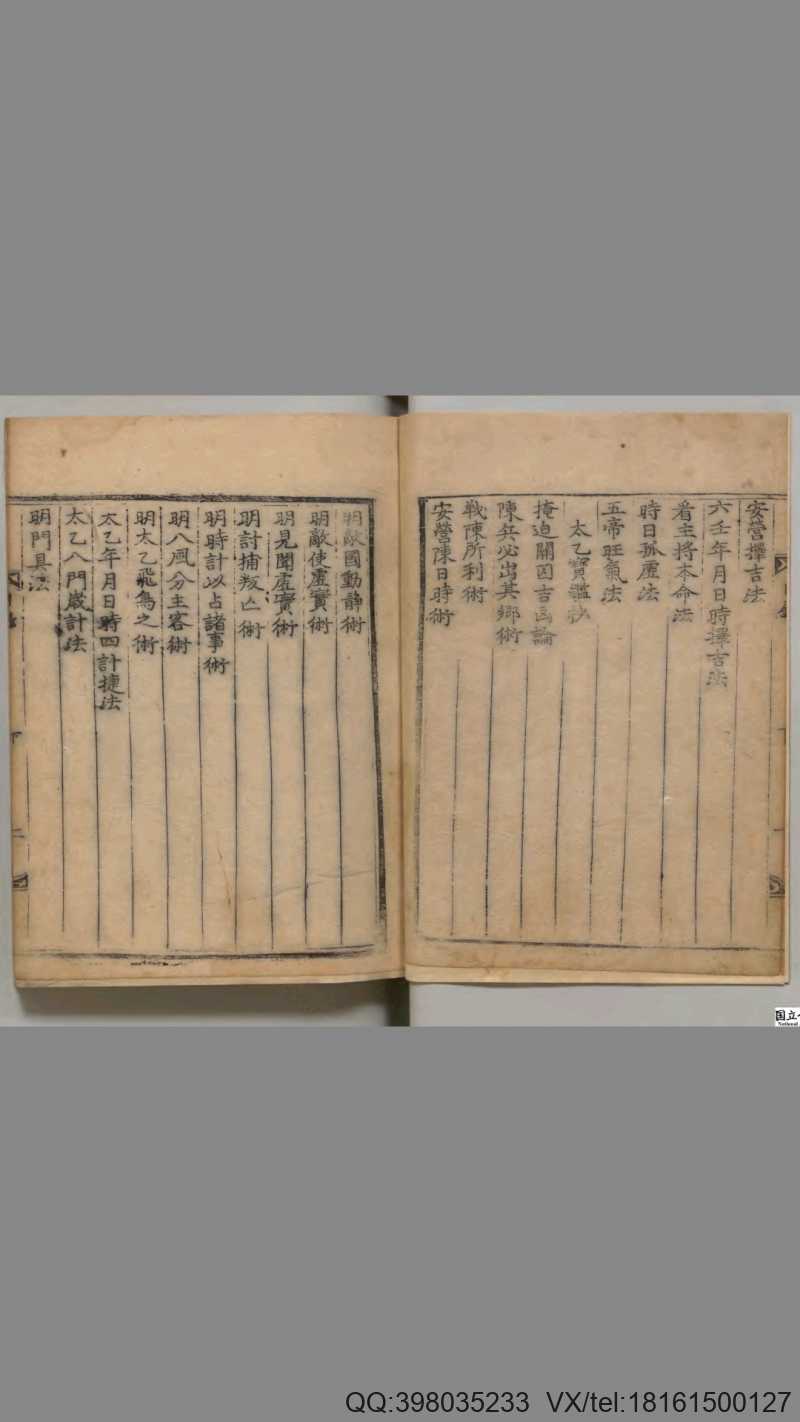 安營擇吉法
六壬年月日時擇吉法
看主将本命法
時日孤虛法
五帝旺氣法
太乙寳鑑
掩迫關囚吉凶論
陳兵必出其鄉術
戦陳所利術
安營陳日時術
明敵國動静術
明敵使虛實術
明見聞虛實術
明計捕叛亡術
明時計以占諸事術
明八風分主客術
明太乙飛鳥之術
太乙年月日時四計捷法
太乙八門歲計法
明門具法
国立
National
QQ:398035233 VX/tel:18161500127